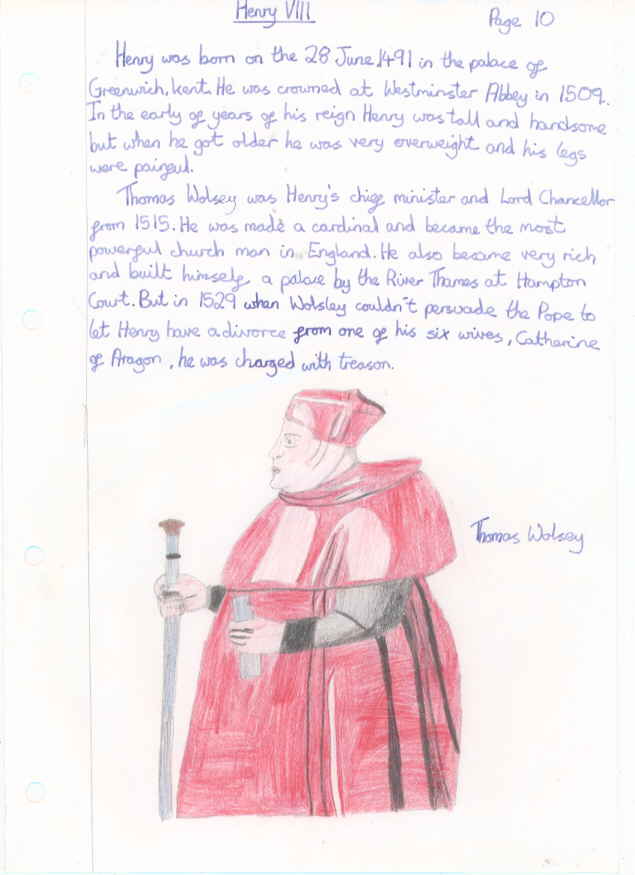 Henry VIII
Page 10
Henry was born on the 28 June 1491 in the palace of
Greenwich, Kent. He was crowned at Westminster Abbey in 1509.
In the early of years of his reign Henry was tall and handsome
but when he got older he was very overweight and his legs
were painful.
Thomas Wolsey was Henry's chief minister and Lord Chancellor
from 1515. He was made a cardinal and became the most
powerful church man in England. He also became very rich
and built himself a palace by the River Thames at Hampton
Court. But in 1529 when Wolsley couldn't persuade the Pope to
let Henry have a divorce from one of his six wives, Catherine
of Aragon, he was charged with treason.
Thomas Wolsey